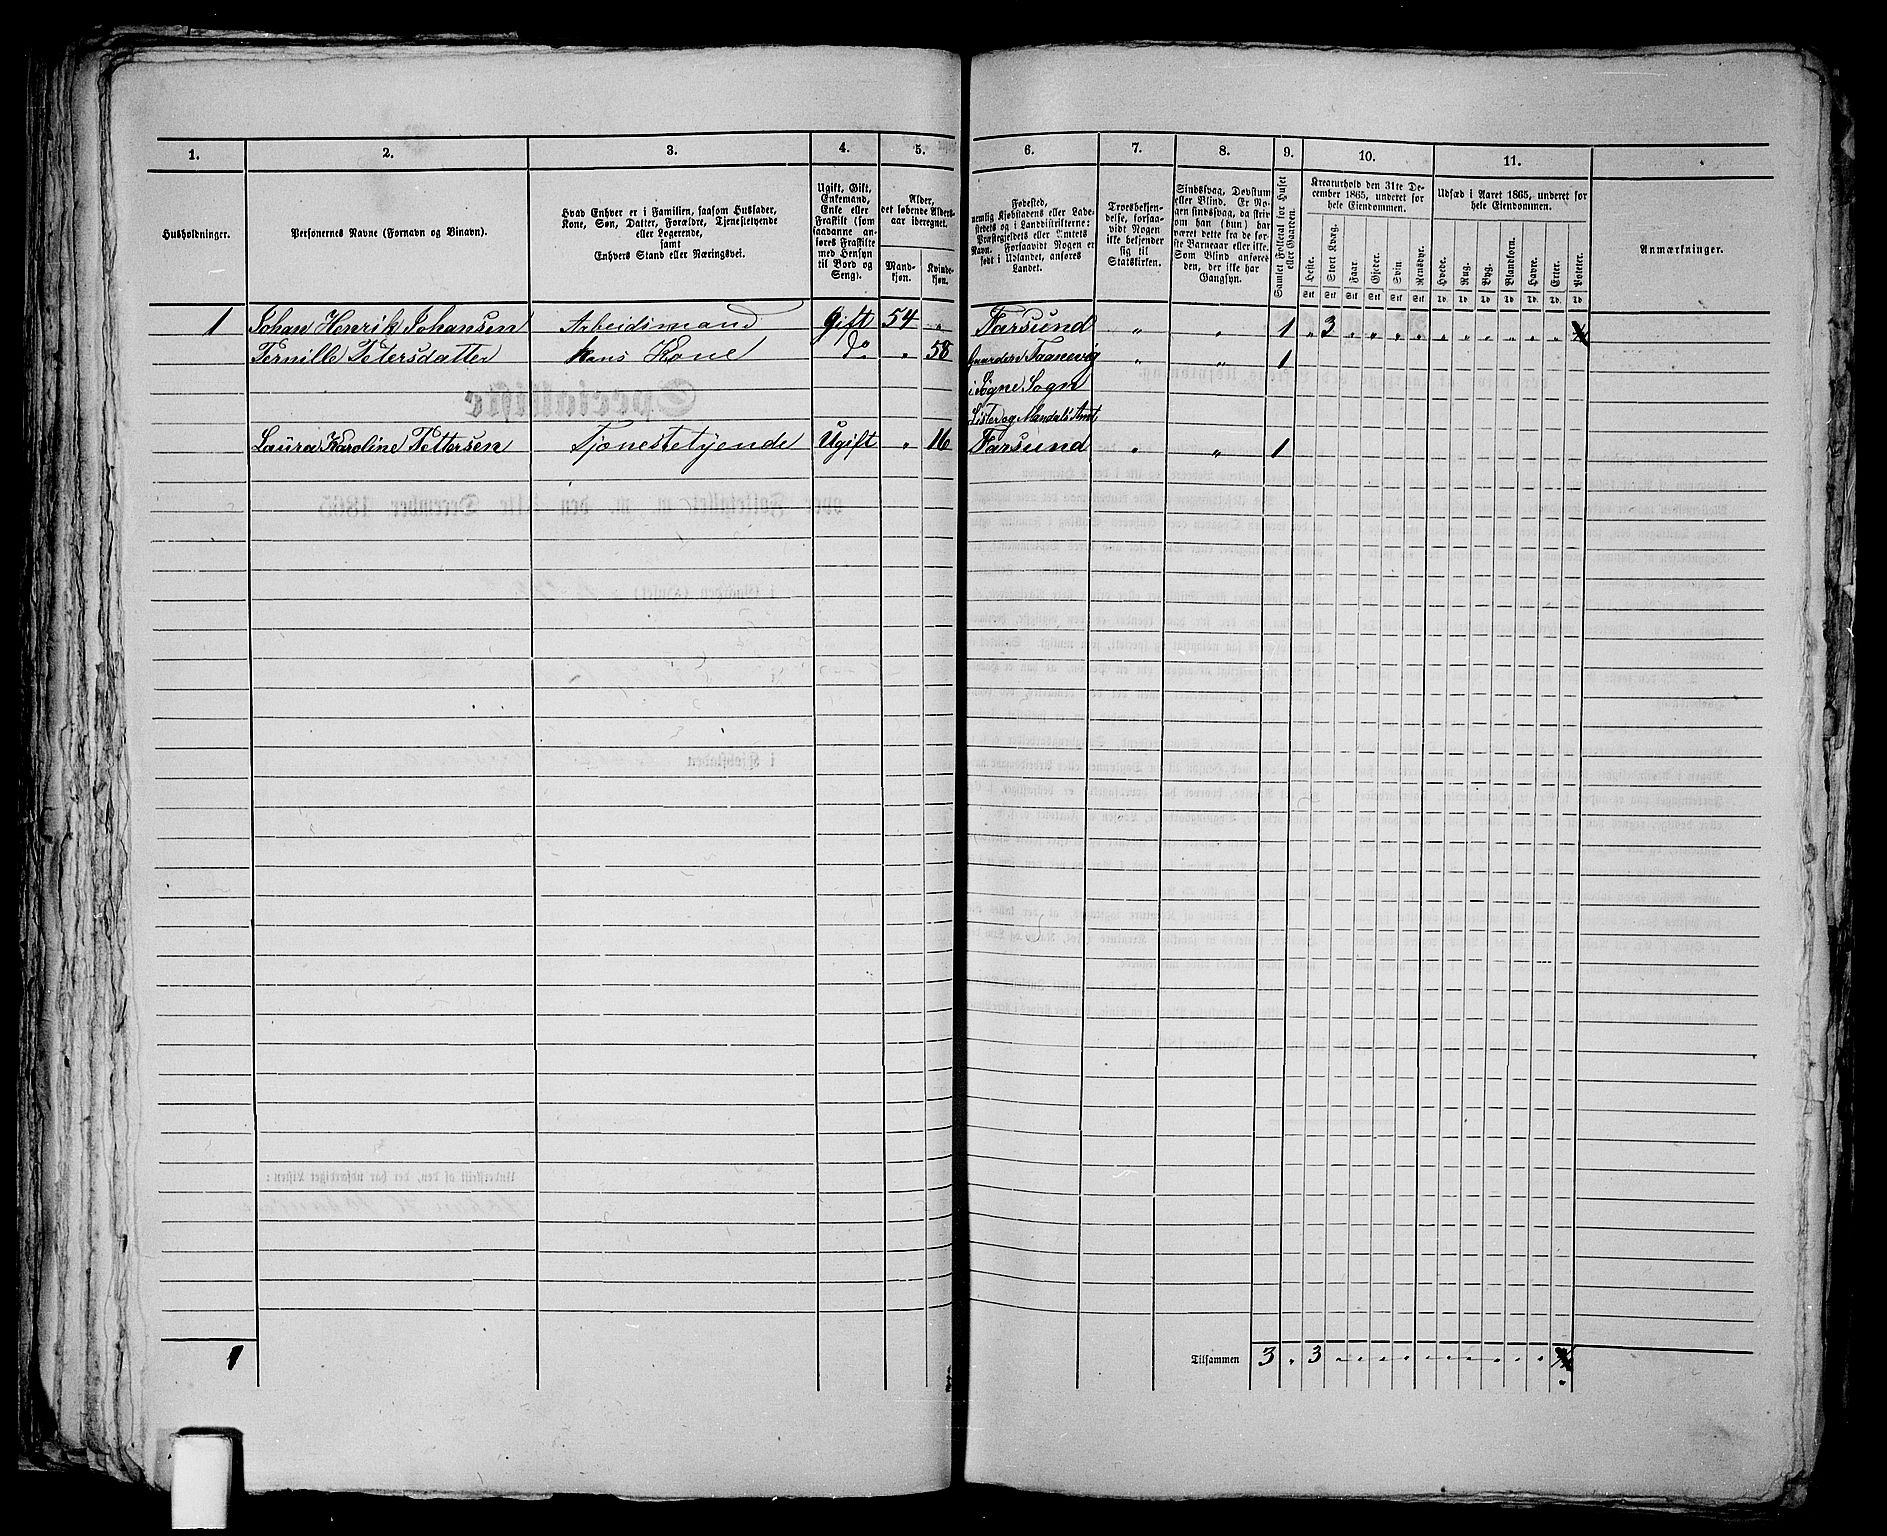 1. 2. 3. 4. 5. 6. 7. 8. 9. 10. 11.
Husholdninger.
Personernes Navne (Fornavn og Binavn).
Hvad Enhver er i Familien, saasom Husfader,
Kone, Søn, Datter, Forældre, Tjenestetyende
eller Logerende,
samt
Enhvers Stand eller Næringsvei.
Ugift, Gift,
Enkemand,
Enke eller
Fraskilt (som
saadanne an-
føres Fraskilte
med Hensyn
til Bord og
Seng).
Alder,
det løbende Alders-
aar iberegnet.
Mand-
kjøn.
Kvinde-
kjøn.
Fødested,
nemlig Kjøbstadens eller Lade-
stedets og i Landdistrikterne:
Præstegjeldets eller Amtets
Navn. Forsaavidt Nogen er
født i Udlandet, anføres
Landet.
Troesbekjen-
delse, forsaa-
vidt Nogen
ikke bekjender
sig til
Statskirken.
Sindssvag, Døvstum
eller Blind. Er No-
gen sindssvag, da skriv
om han (hun) har
været dette fra de før-
ste Barneaar eller ikke.
Som Blind anføres
den, der ikke har
Gangsyn.
Samlet Folketal for Huset
eller Gaarden.
Kreaturhold den 31te De-
cember 1865, underet for
hele Eiendommen.
Heste.
Stort Kvæg.
Faar.
Gjeder.
Svin
Rensdyr.
Stk Stk Stk Stk Stk Stk
Udsæd i Aaret 1865, underet for
hele Eiendommen.
Hvede.
Rug.
Byg.
Blandkorn.
Havre.
Erter.
Poteter.
Td. Td. Td. Td. Td. Td. Td.
Anmærkninger.
1 Johan Henrik Johansen Arbeidsmand Gift 54 „ Farsund „ „ 1 „ 3 „ „ „ „ „ „ „ „ „ „
Pernille Petersdatter Hans Kone do „ 58 Gaarden Taanevig „ „ 1
i Søgne Sogn
Lister og Mandals Amt
Laura Karoline Pettersen Tjenestetyende Ugift „ 16 Farsund „ „ 1
1 Tilsammen 3 „ 3 „ „ „ „ „ „ „ „ „ „